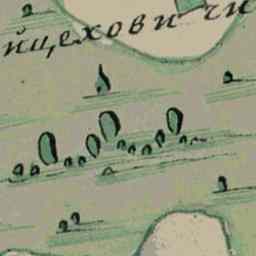 йцеховичи